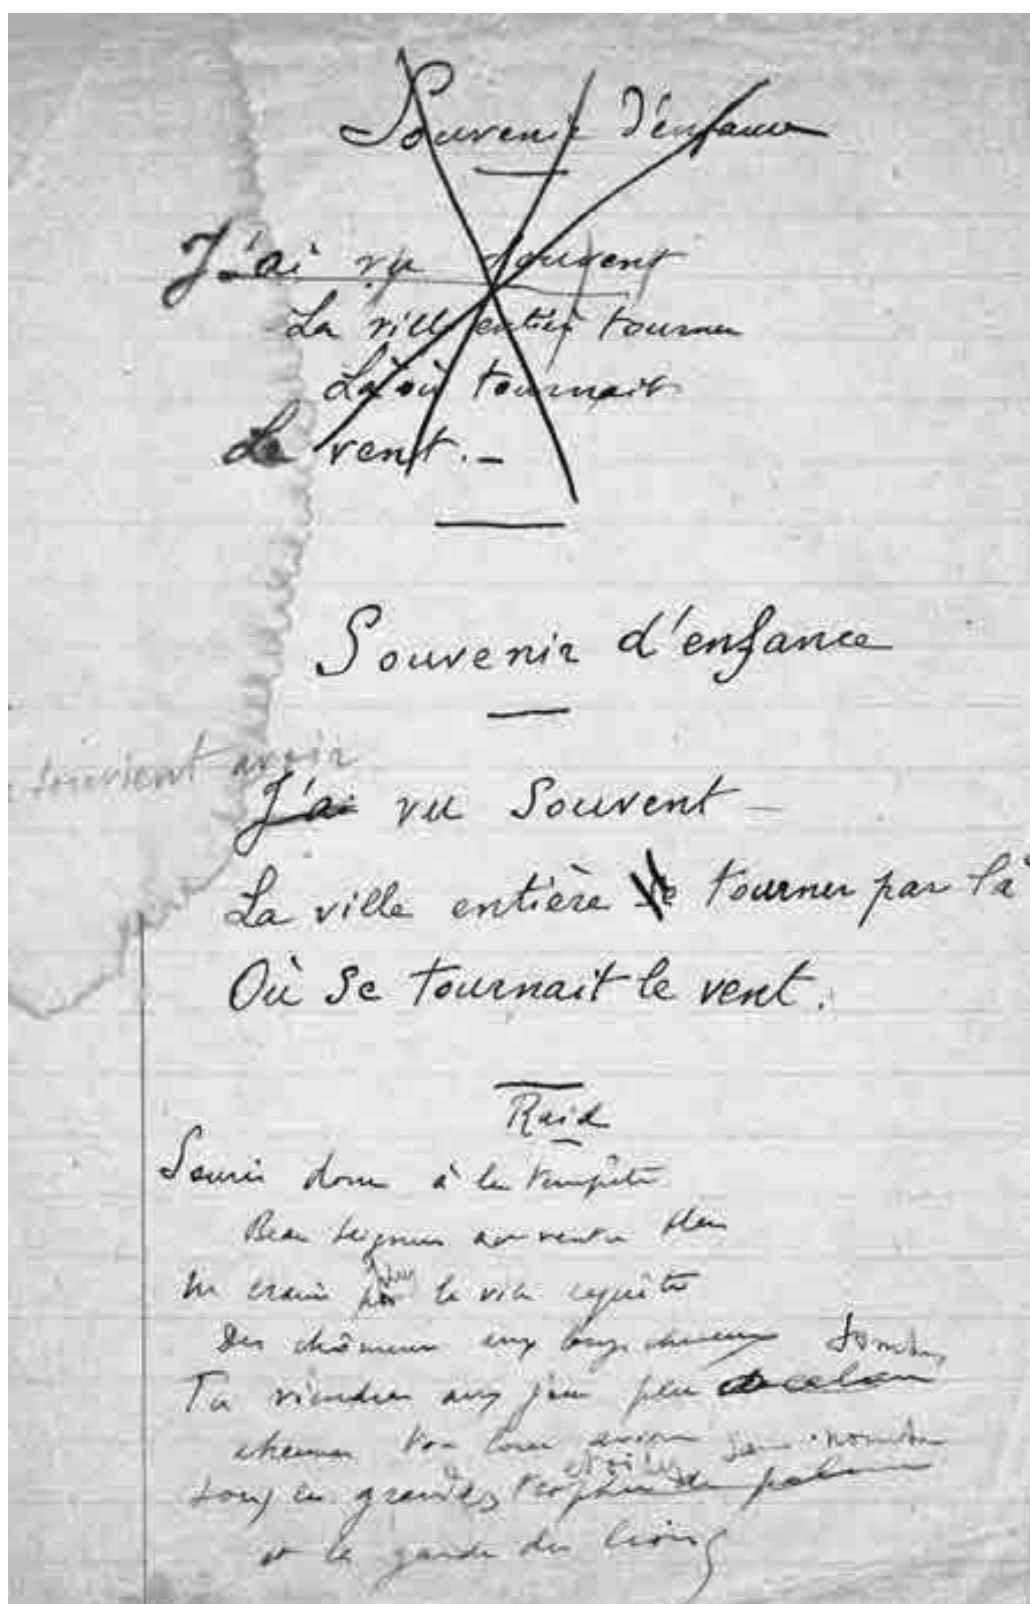 Souvenir d'enfance
J'ai vu souvent
La ville entière tourner
Là où tournait
Le vent. -
Souvenir d'enfance
souvient avoir
J'ai vu Souvent -
La ville entière se tourner par là
Où se tournait le vent.
Raid
Souris donc à la tempête
Beau Seigneur au ventre
la vile
Des chômeurs aux longs cheveux sombres
Tu viendras aux plus
ton avion sans nombre
étoiles
Sous les grandes
et la garde des lions